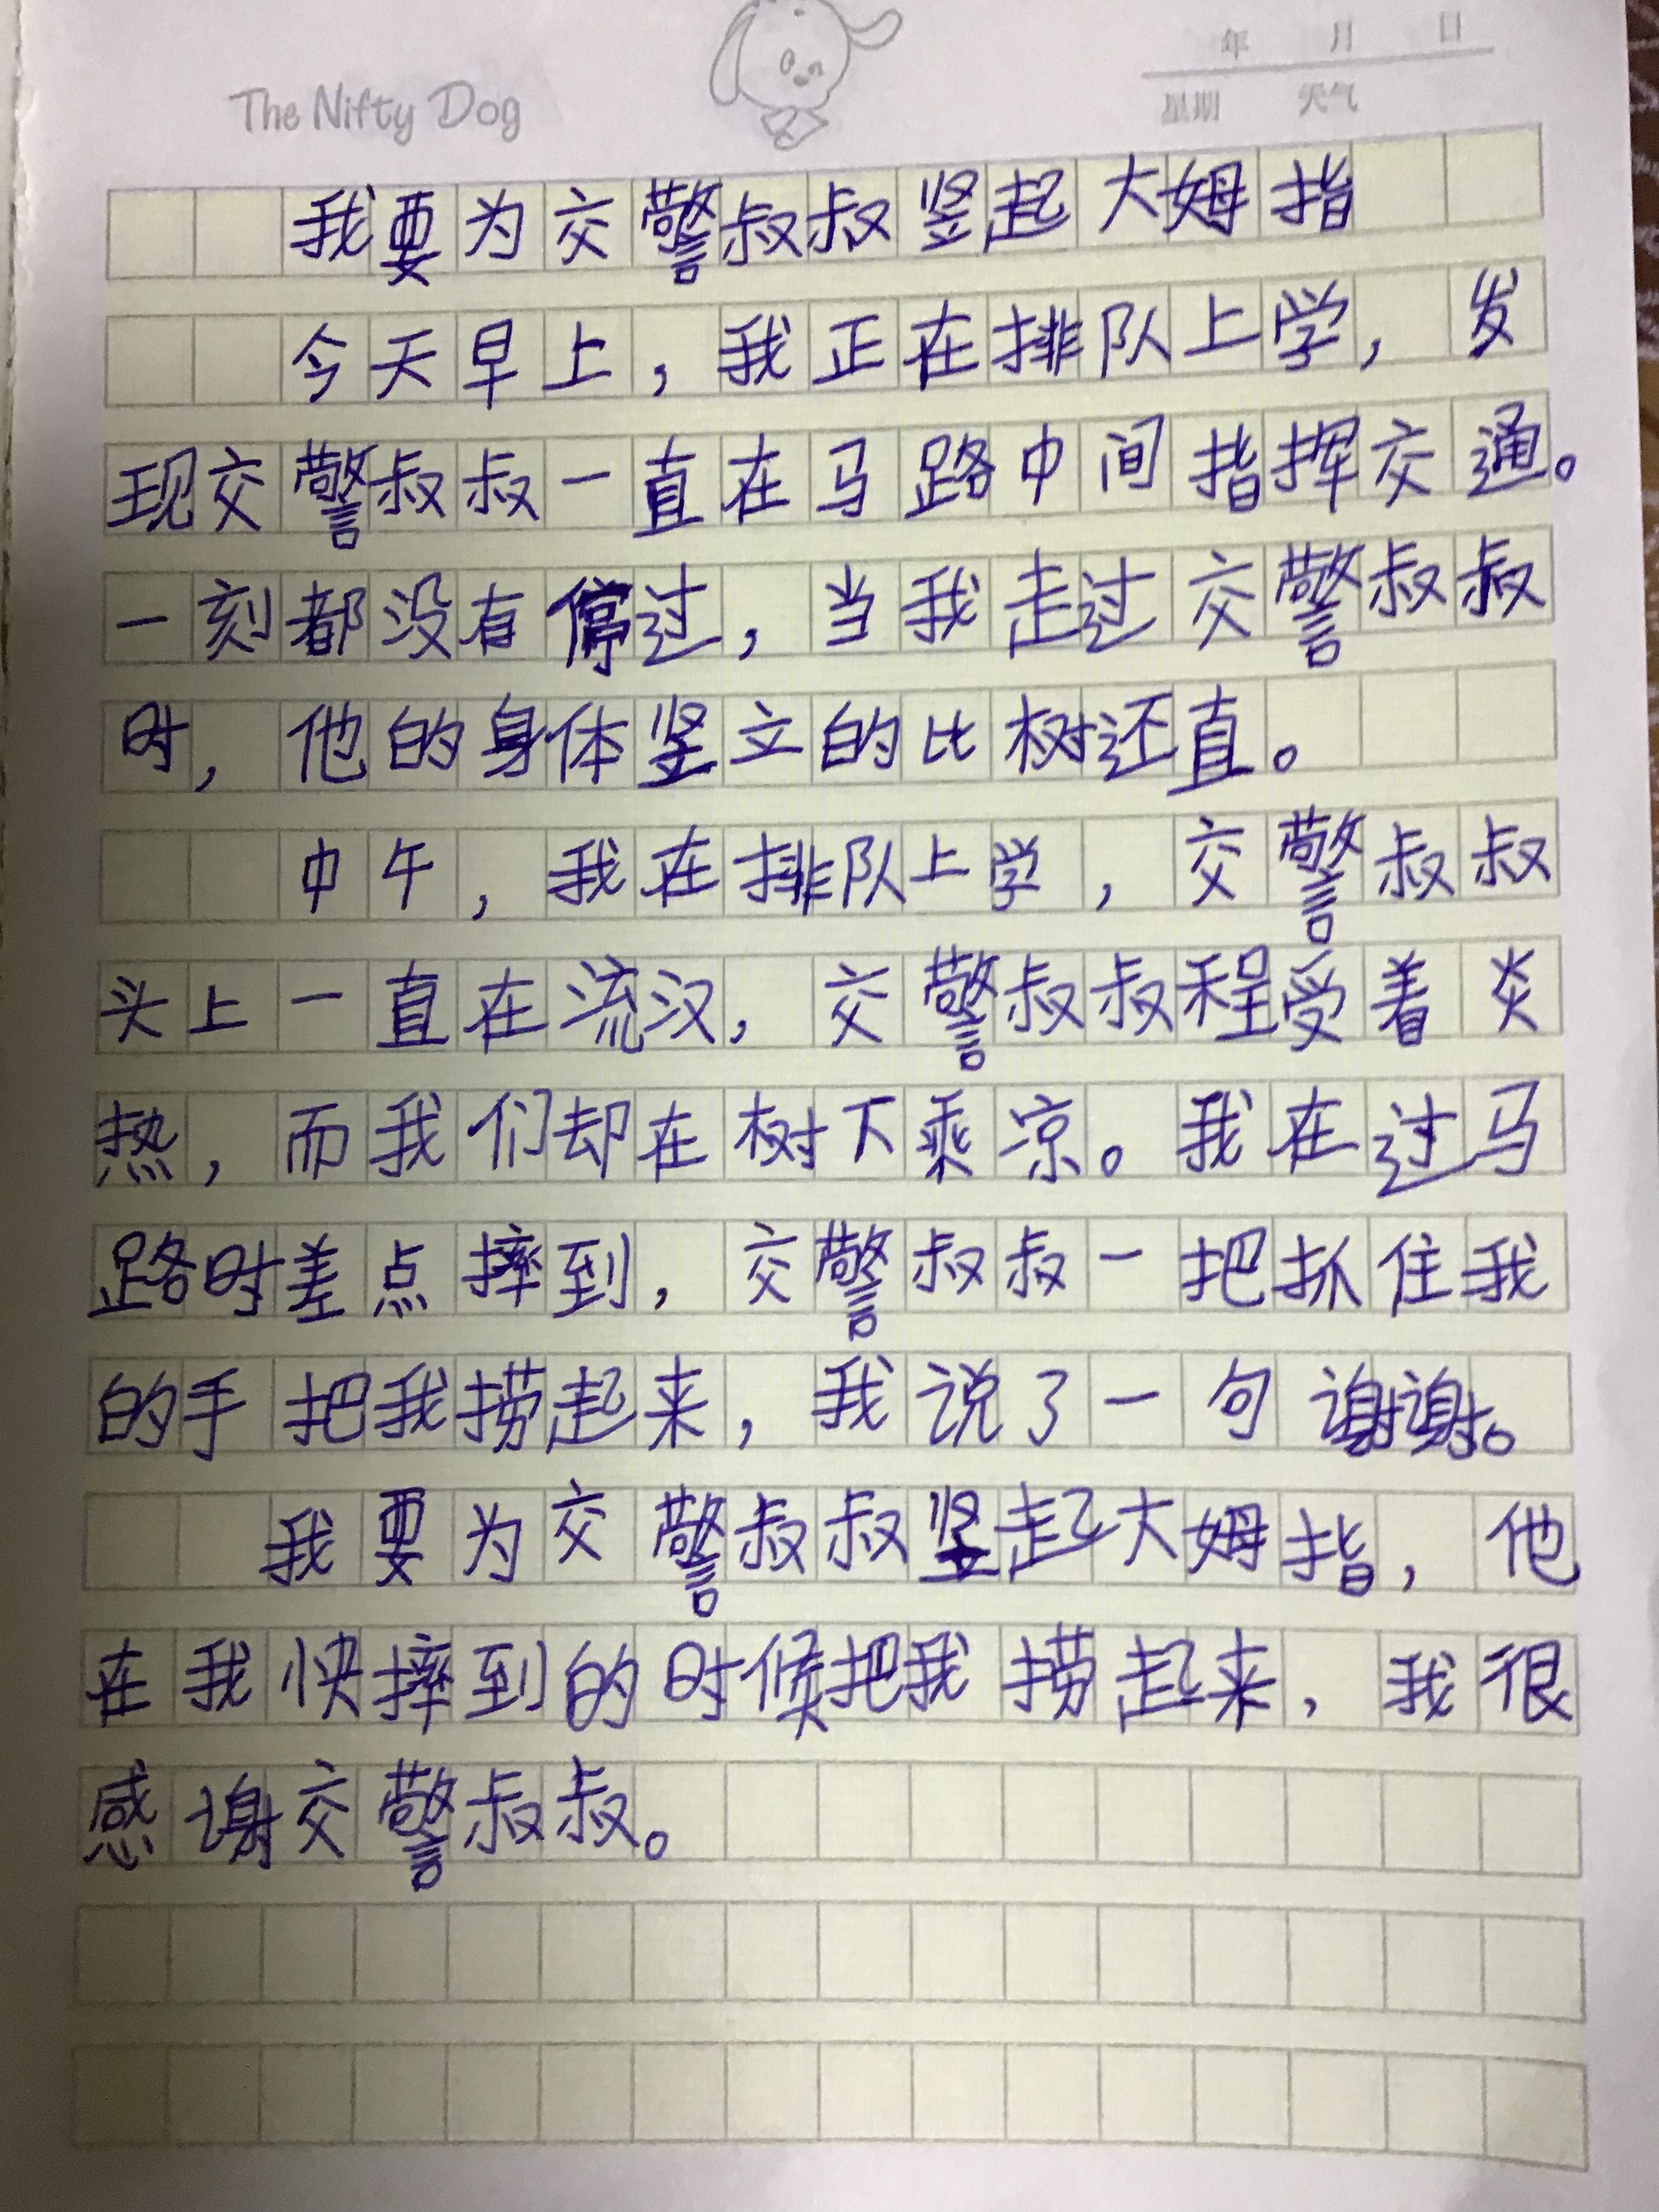 The Nifty Dog
年 月 日
星期 天气
我要为交警叔叔竖起大姆指
今天早上，我正在排队上学，发
现交警叔叔一直在马路中间指挥交通。
一刻都没有停过，当我走过交警叔叔
时，他的身体竖立的比树还直。
中午，我在排队上学，交警叔叔
头上一直在流汉，交警叔叔程受着炎
热，而我们却在树下乘凉。我在过马
路时差点摔到，交警叔叔一把抓住我
的手把我捞起来，我说了一句谢谢。
我要为交警叔叔竖起大姆指，他
在我快摔到的时候把我捞起来，我很
感谢交警叔叔。